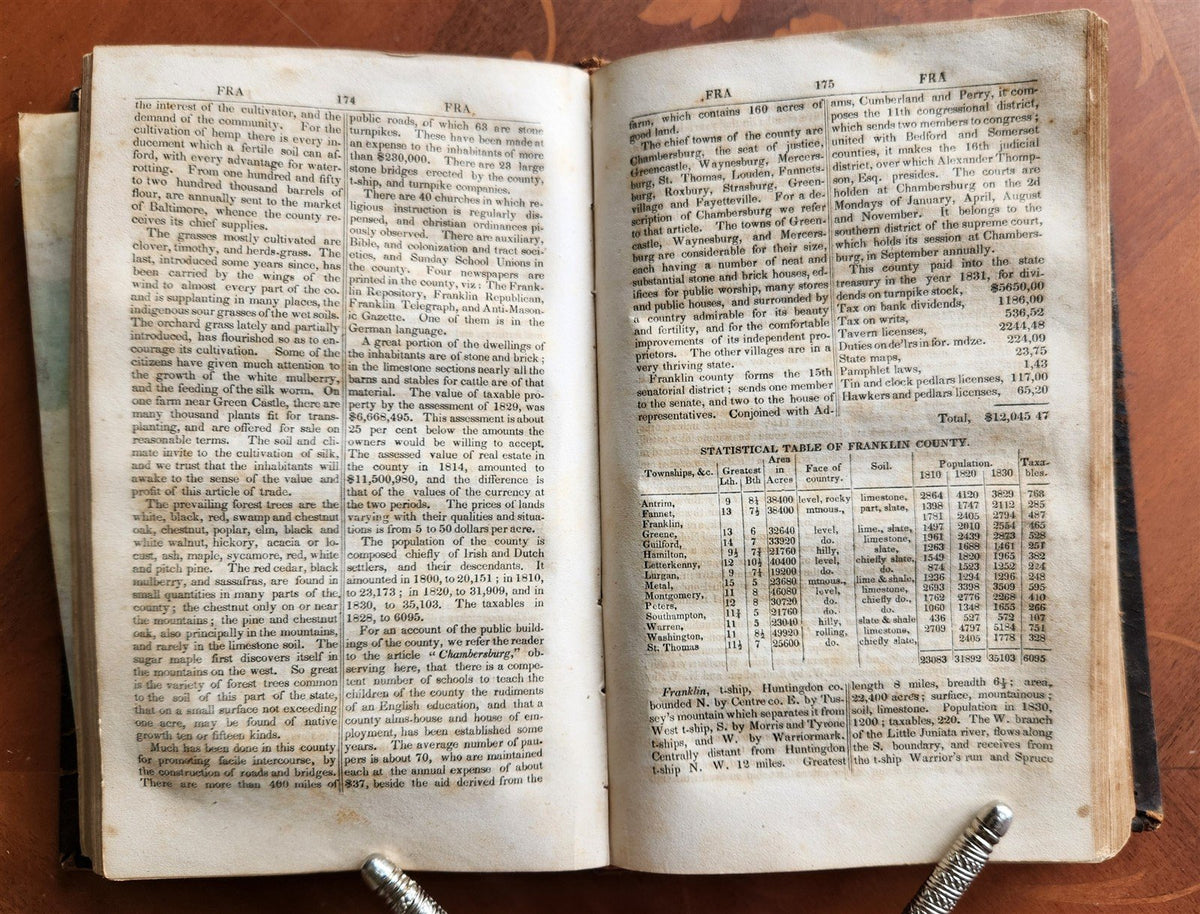 FRA
174
FRA
the interest of the cultivator, and the
demand of the community. For the
cultivation of hemp there is every in-
ducement which a fertile soil can af-
ford, with every advantage for water-
rotting. From one hundred and fifty
to two hundred thousand barrels of
flour, are annually sent to the market
of Baltimore, whence the county re-
ceives its chief supplies.
The grasses mostly cultivated are
clover, timothy, and herds-grass. The
last, introduced some years since, has
been carried by the wings of the
wind to almost every part of the co.
and is supplanting in many places, the
indigenous sour grasses of the wet soils.
The orchard grass lately and partially
introduced, has flourished so as to en-
courage its cultivation. Some of the
citizens have given much attention to
the growth of the white mulberry,
and the feeding of the silk worm. On
one farm near Green Castle, there are
many thousand plants fit for trans-
planting, and are offered for sale on
reasonable terms. The soil and cli-
mate invite to the cultivation of silk,
and we trust that the inhabitants will
awake to the sense of the value and
profit of this article of trade.
The prevailing forest trees are the
white, black, red, swamp and chestnut
oak, chestnut, poplar, elm, black and
white walnut, hickory, acacia or lo-
cust, ash, maple, sycamore, red, white
and pitch pine. The red cedar, black
mulberry, and sassafras, are found in
small quantities in many parts of the
county; the chestnut only on or near
the mountains; the pine and chestnut
oak, also principally in the mountains,
and rarely in the limestone soil. The
sugar maple first discovers itself in
the mountains on the west. So great
is the variety of forest trees common
to the soil of this part of the state,
that on a small surface not exceeding
one acre, may be found of native
growth ten or fifteen kinds.
Much has been done in this county
for promoting facile intercourse, by
the construction of roads and bridges.
There are more than 400 miles of
public roads, of which 63 are stone
turnpikes. These have been made at
an expense to the inhabitants of more
than $230,000. There are 23 large
stone bridges erected by the county,
t-ship, and turnpike companies.
There are 40 churches in which re-
ligious instruction is regularly dis-
pensed, and christian ordinances pi-
ously observed. There are auxiliary,
Bible, and colonization and tract soci-
eties, and Sunday School Unions in
the county. Four newspapers are
printed in the county, viz: The Frank-
lin Repository, Franklin Republican,
Franklin Telegraph, and Anti-Mason-
ic Gazette. One of them is in the
German language.
A great portion of the dwellings of
the inhabitants are of stone and brick;
in the limestone sections nearly all the
barns and stables for cattle are of that
material. The value of taxable pro-
perty by the assessment of 1829, was
$6,668,495. This assessment is about
25 per cent below the amounts the
owners would be willing to accept.
The assessed value of real estate in
the county in 1814, amounted to
$11,500,980, and the difference is
that of the values of the currency at
the two periods. The prices of lands
varying with their qualities and situa-
tions is from 5 to 50 dollars per acre.
The population of the county is
composed chiefly of Irish and Dutch
settlers, and their descendants. It
amounted in 1800, to 20,151; in 1810,
to 23,173; in 1820, to 31,909, and in
1830, to 35,103. The taxables in
1828, to 6095.
For an account of the public build-
ings of the county, we refer the reader
to the article "Chambersburg," ob-
serving here, that there is a compe-
tent number of schools to teach the
children of the county the rudiments
of an English education, and that a
county alms-house and house of em-
ployment, has been established some
years. The average number of pau-
pers is about 70, who are maintained
each at the annual expense of about
$37, beside the aid derived from the
FRA
175
FRA
farm, which contains 160 acres of
good land.
The chief towns of the county are
Chambersburg, the seat of justice,
Greencastle, Waynesburg, Mercers-
burg, St. Thomas, Louden, Fannets-
burg, Roxbury, Strasburg, Green-
village and Fayetteville. For a de-
scription of Chambersburg we refer
to that article. The towns of Green-
castle, Waynesburg, and Mercers-
burg are considerable for their size,
each having a number of neat and
substantial stone and brick houses, ed-
ifices for public worship, many stores
and public houses, and surrounded by
a country admirable for its beauty
and fertility, and for the comfortable
improvements of its independent pro-
prietors. The other villages are in a
very thriving state.
Franklin county forms the 15th
senatorial district; sends one member
to the senate, and two to the house of
representatives. Conjoined with Ad-
ams, Cumberland and Perry, it com-
poses the 11th congressional district,
which sends two members to congress;
united with Bedford and Somerset
counties, it makes the 16th judicial
district, over which Alexander Thomp-
son, Esq. presides. The courts are
holden at Chambersburg on the 2d
Mondays of January, April, August
and November. It belongs to the
southern district of the supreme court,
which holds its session at Chambers-
burg, in September annually.
This county paid into the state
treasury in the year 1831, for divi-
dends on turnpike stock, $5650,00
Tax on bank dividends, 1186,00
Tax on writs, 536,52
Tavern licenses, 2244,48
Duties on de'lrs in for. mdze. 224,09
State maps, 23,75
Pamphlet laws, 1,43
Tin and clock pedlars licenses, 117,00
Hawkers and pedlars licenses, 65,20
Total, $12,045 47
STATISTICAL TABLE OF FRANKLIN COUNTY.
Townships, &c. Greatest Lth. Bth Area in Acres Face of country. Soil. Population. 1810 1820 1830 Taxa-bles.
Antrim, 9 8½ 38400 level, rocky limestone, 2864 4120 3829 768
Fannet, 13 7½ 38400 mtnous., part, slate, 1398 1747 2112 285
Franklin, 1781 2405 2794 487
Greene, 13 6 32640 level, lime., slate, 1497 2010 2554 465
Guilford, 14 7 33920 do. limestone, 1961 2439 2873 528
Hamilton, 9½ 7¾ 21760 hilly, slate, 1263 1688 1461 251
Letterkenny, 12 10½ 40400 level, chiefly slate, 1549 1820 1965 382
Lurgan, 9 7½ 19200 do. do. 874 1523 1252 224
Metal, 15 5 23680 mtnous., lime & shale, 1236 1294 1296 248
Montgomery, 11 8 46080 level, limestone, 2693 3398 3509 595
Peters, 12 8 30720 do. chiefly do., 1762 2776 2268 410
Southampton, 11¾ 5 21760 do. do. 1060 1348 1655 266
Warren, 11 5 23040 hilly, slate & shale 436 527 572 107
Washington, 11 8½ 49920 rolling, limestone, 2709 4797 5184 751
St. Thomas 11½ 7 25600 do. chiefly slate, 2405 1778 328
23083 31892 35103 6095
Franklin, t-ship, Huntingdon co.
bounded N. by Centre co. E. by Tus-
sey's mountain which separates it from
West t-ship, S. by Morris and Tyrone
t-ships, and W. by Warriormark.
Centrally distant from Huntingdon
t-ship N. W. 12 miles. Greatest
length 8 miles, breadth 6½; area,
22,400 acres; surface, mountainous;
soil, limestone. Population in 1830,
1200; taxables, 220. The W. branch
of the Little Juniata river, flows along
the S. boundary, and receives from
the t-ship Warrior's run and Spruce